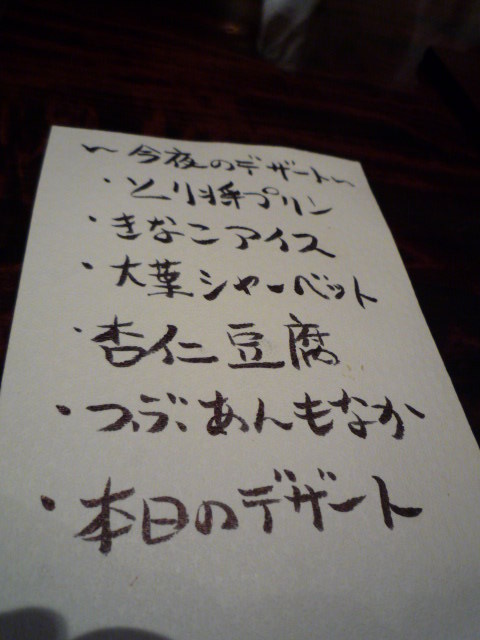 〜今夜のデザート〜
・とり将プリン
・きなこアイス
・大葉シャーベット
・杏仁豆腐
・つぶあんもなか
・本日のデザート